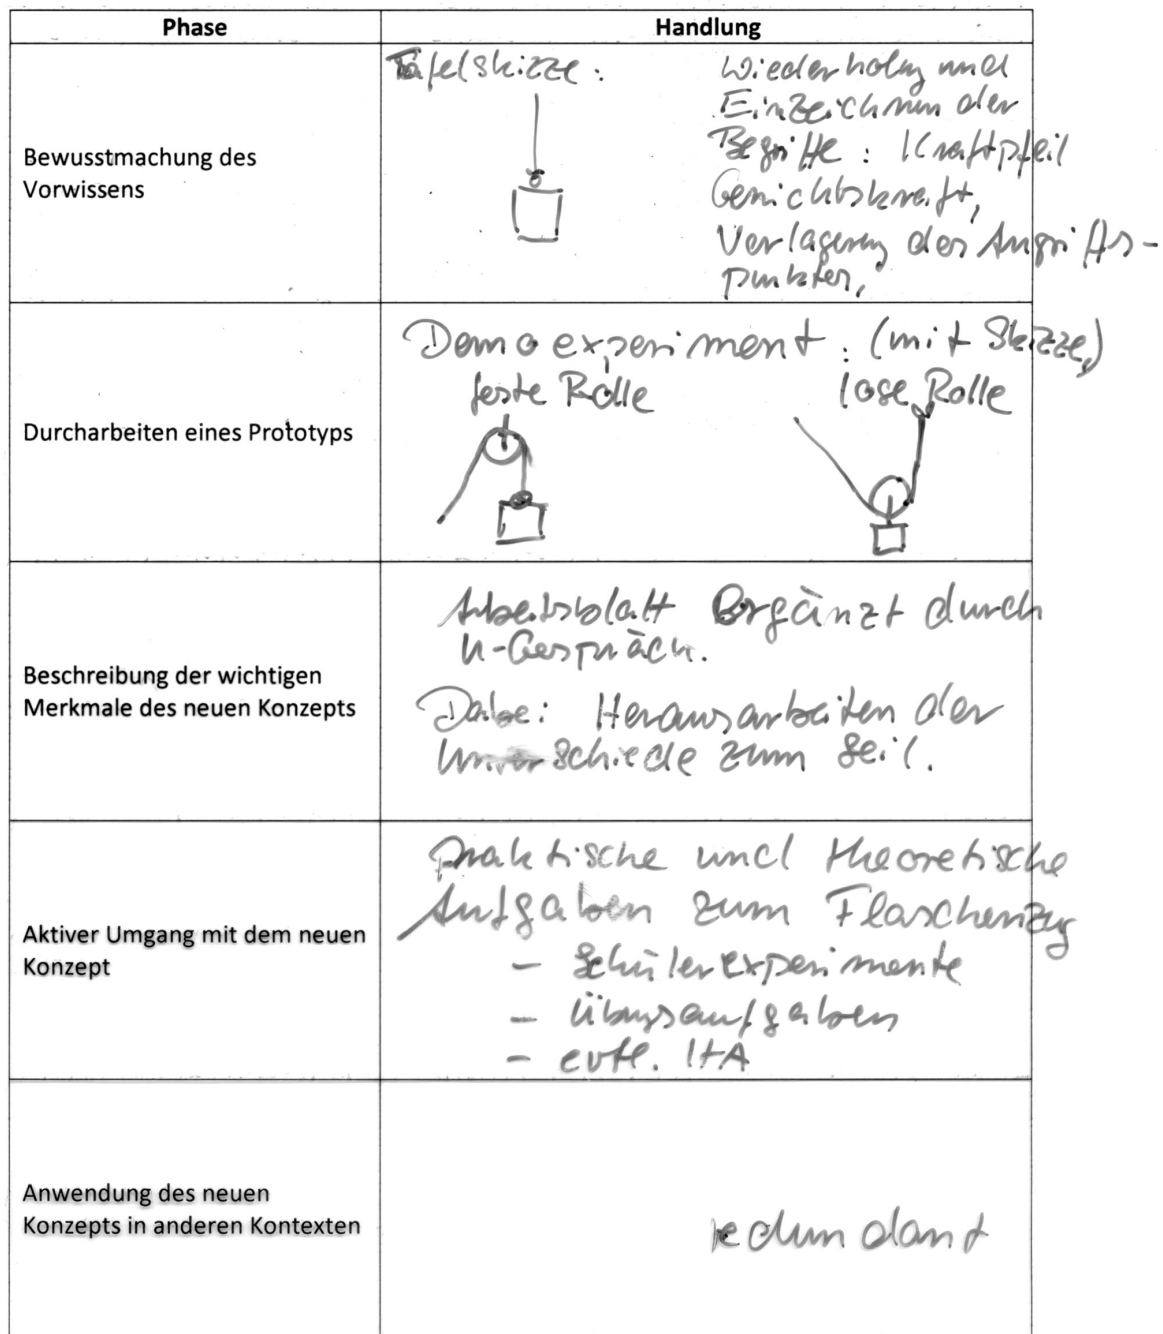 Phase
Handlung
Bewusstmachung des
Vorwissens
Tafelskizze:
Wiederholng und
Einzeichnen der
Begriffe: Kraftpfeil
Gewichtskraft,
Verlagerung des Angriffs-
punktes,
Durcharbeiten eines Prototyps
Demoexperiment: (mit Skizze)
feste Rolle
lose Rolle
Beschreibung der wichtigen
Merkmale des neuen Konzepts
Arbeitsblatt Ergänzt durch
U-Gespräch.
Dabei: Herausarbeiten der
Unterschiede zum Seil.
Aktiver Umgang mit dem neuen
Konzept
praktische und theoretische
Aufgaben zum Flaschenzug
- Schülerexperimente
- Übungsaufgaben
- evtl. HA
Anwendung des neuen
Konzepts in anderen Kontexten
redundant